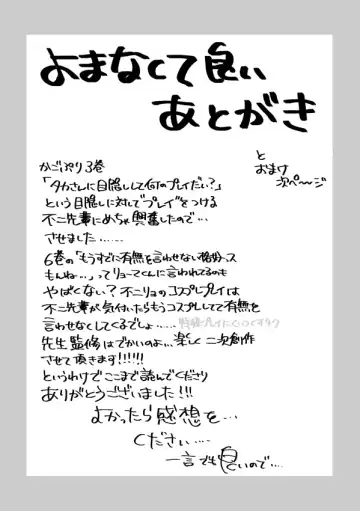 よまなくて良い
あとがき
と
おまけ
次ペ〜ジ
かごぷり3巻
「タカさんに目隠しして何のプレイだい?」
という目隠しに対して"プレイ"をつける
不二先輩にめちゃ興奮したので…
させました……
6巻の「もうすでに有無を言わせない格好ース
もんね…」ってリョーマくんに言われてるのも
やばくない?不二リョのコスプレプレイは
不二先輩が気付いたらもうコスプレしてて有無を
言わせなくしてくるでしょ……
先生監修はでかいのよ…楽しく二次創作
させて頂きます!!!!!!
というわけでここまで読んでくださり
ありがとうございました!!!
よかったら感想を…
ください…
一言でも良いので…